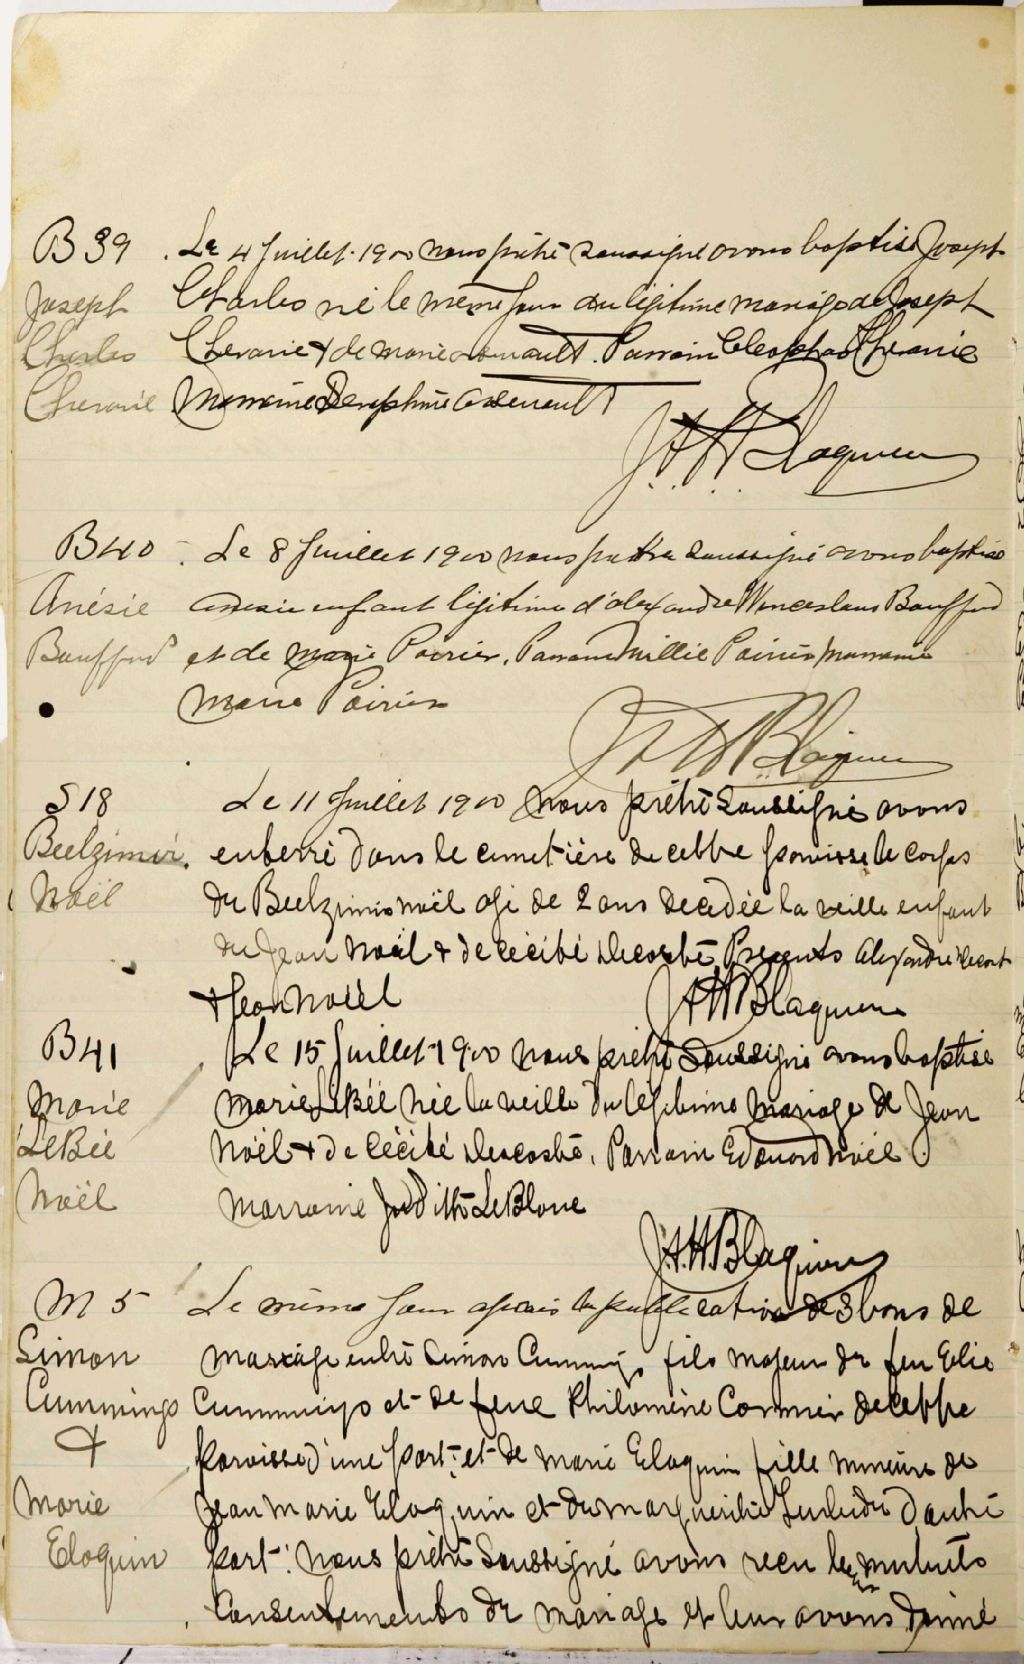 B 39
Joseph
Charles
Chevarie
Le 4 Juillet 1900 nous prêtre soussigné avons baptisé Joseph
Charles né le même jour du légitime mariage de Joseph
Chevarie & de Marie Arsenault. Parrain Cleophas Chevarie
Marraine Seraphine Arsenault
J. A. H. Blaquiere
B 40
Anésie
Bouffard
Le 8 Juillet 1900 nous prêtre soussigné avons baptisé
Anesie enfant légitime d'alexandre Wenceslaus Bouffard
et de Marie Poirier. Parrain Willie Poirier marraine
Marie Poirier
J A H Blaquiere
S 18
Beelzimir
Noël
Le 11 Juillet 1900 nous prêtre soussigné avons
enterré dans le cimetière de cette paroisse le corps
de Beelzimir Noël agé de 2 ans decedée la veille enfant
de Jean Noël & de Cécile Decoste Presents Alexandre Decost
& Jean Noël
J A H Blaquiere
B 41
Marie
LeBée
Noël
Le 15 Juillet 1900 nous prêtre soussigné avons baptisé
Marie LeBée née la veille du légitime mariage de Jean
Noël & de Cécile Decoste. Parrain Edouard Noël
Marraine Judith LeBlanc
J. A. H Blaquiere
M 5
Simon
Cummings
&
Marie
Eloquin
Le même jour après la publication de 3 bans de
mariage entre Simon Cummings fils majeur de feu Elie
Cummings et de feue Philomène Cormier de cette
paroisse d'une part; et de Marie Eloquin fille mineure de
Jean Marie Eloquin et de Marguerite d'autre
part: nous prêtre soussigné avons reçu leur mutuels
consentements de mariage et leur avons donné